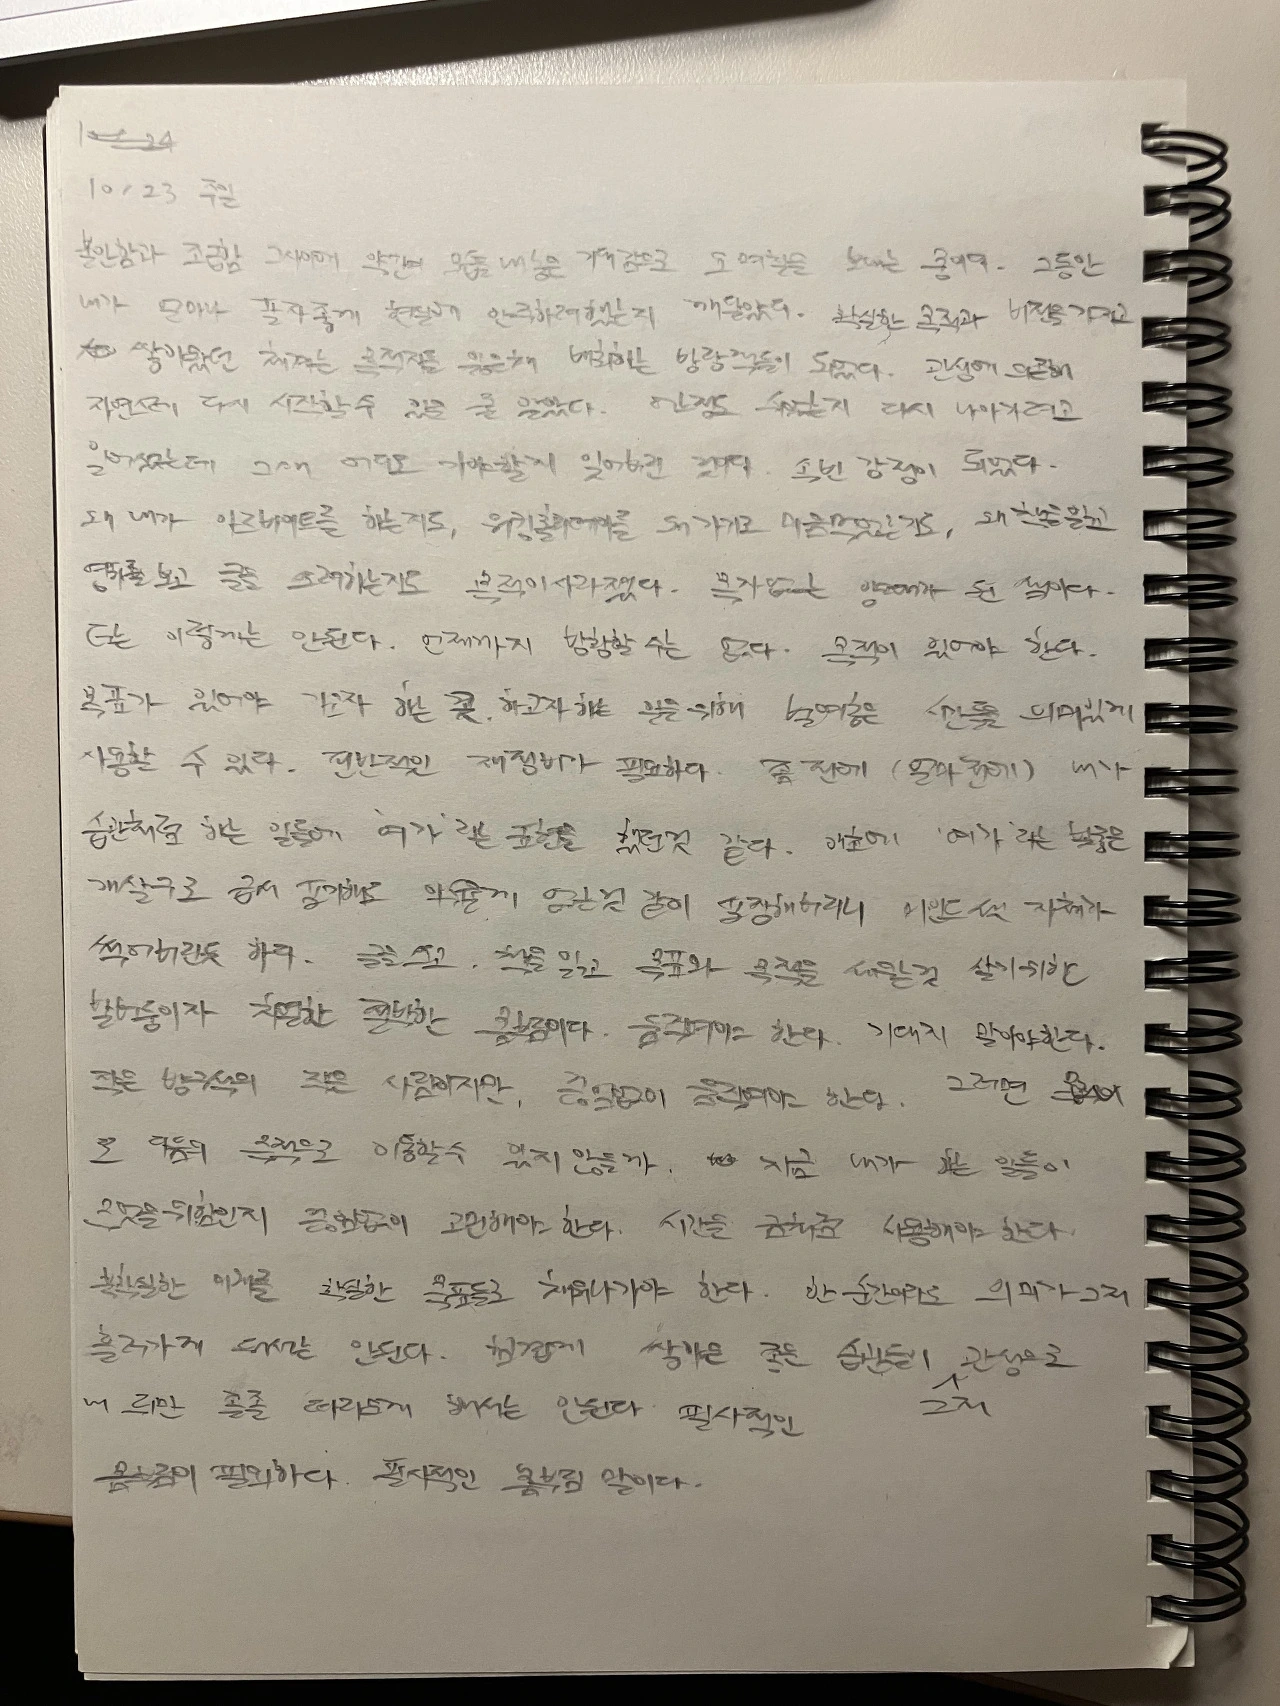 10/23 주일
불안함과 조급함 그사이에 약간의 기대감으로 보내는 중이다. 그동안
내가 얼마나 현실에 안주하려했는지 깨달았다. 확실한 목적과 비전을 가지고
쌓기왔던 목적지를 잃은채 배회하는 방랑객들이 되었다. 관성에 의존해
다시 시작할수 있을 줄 알았다. 다시 나아가려고
일어섰는데 어디로 가야할지 잊어버린 것이다. 감정이 되었다.
왜 내가 아르바이트를 하는지도, 워킹홀리데이를 왜 가기로 마음먹었는지도, 왜 책을 읽고
영화를 보고 글을 쓰려하는지도 목적이 사라졌다. 목자없는 양떼가 된 셈이다.
더는 이렇게는 안된다. 언제까지 방황할 수는 없다. 목적이 있어야 한다.
목표가 있어야 가고자 하는 곳, 하고자 하는 일을 위해 시간들을 의미있게
사용할 수 있다. 전반적인 재정비가 필요하다. 좀 전에 (얼마 전에) 내가
습관처럼 하는 일들에 '여가'라는 표현을 했던것 같다. 애초에 '여가'라는
같이 포장해버리니 마인드셋 자체가
썩어버린듯 하다. 글을 쓰고, 책을 읽고 목표와 목적을 세우는것 살기위한
발버둥이자 처절한 절박한 몸부림이다. 움직여야 한다. 기대지 말아야한다.
작은 방구석의 작은 사람이지만, 끊임없이 움직여야 한다. 그러면
로 다음의 목적으로 이동할수 있지 않을까. 지금 내가 하는 일들이
무엇을 위함인지 끊임없이 고민해야 한다. 시간을 금처럼 사용해야 한다.
불확실한 미래를 확실한 목표들로 채워나가야 한다. 한 순간이라도 의미가 그저
흘러가게 둬서는 안된다. 힘겹게 쌓아온 좋은 습관들이 그저 관성으로
내 뒤만 졸졸 따라오게 해서는 안된다 필사적인
몸부림이 필요하다. 필사적인 몸부림 말이다.